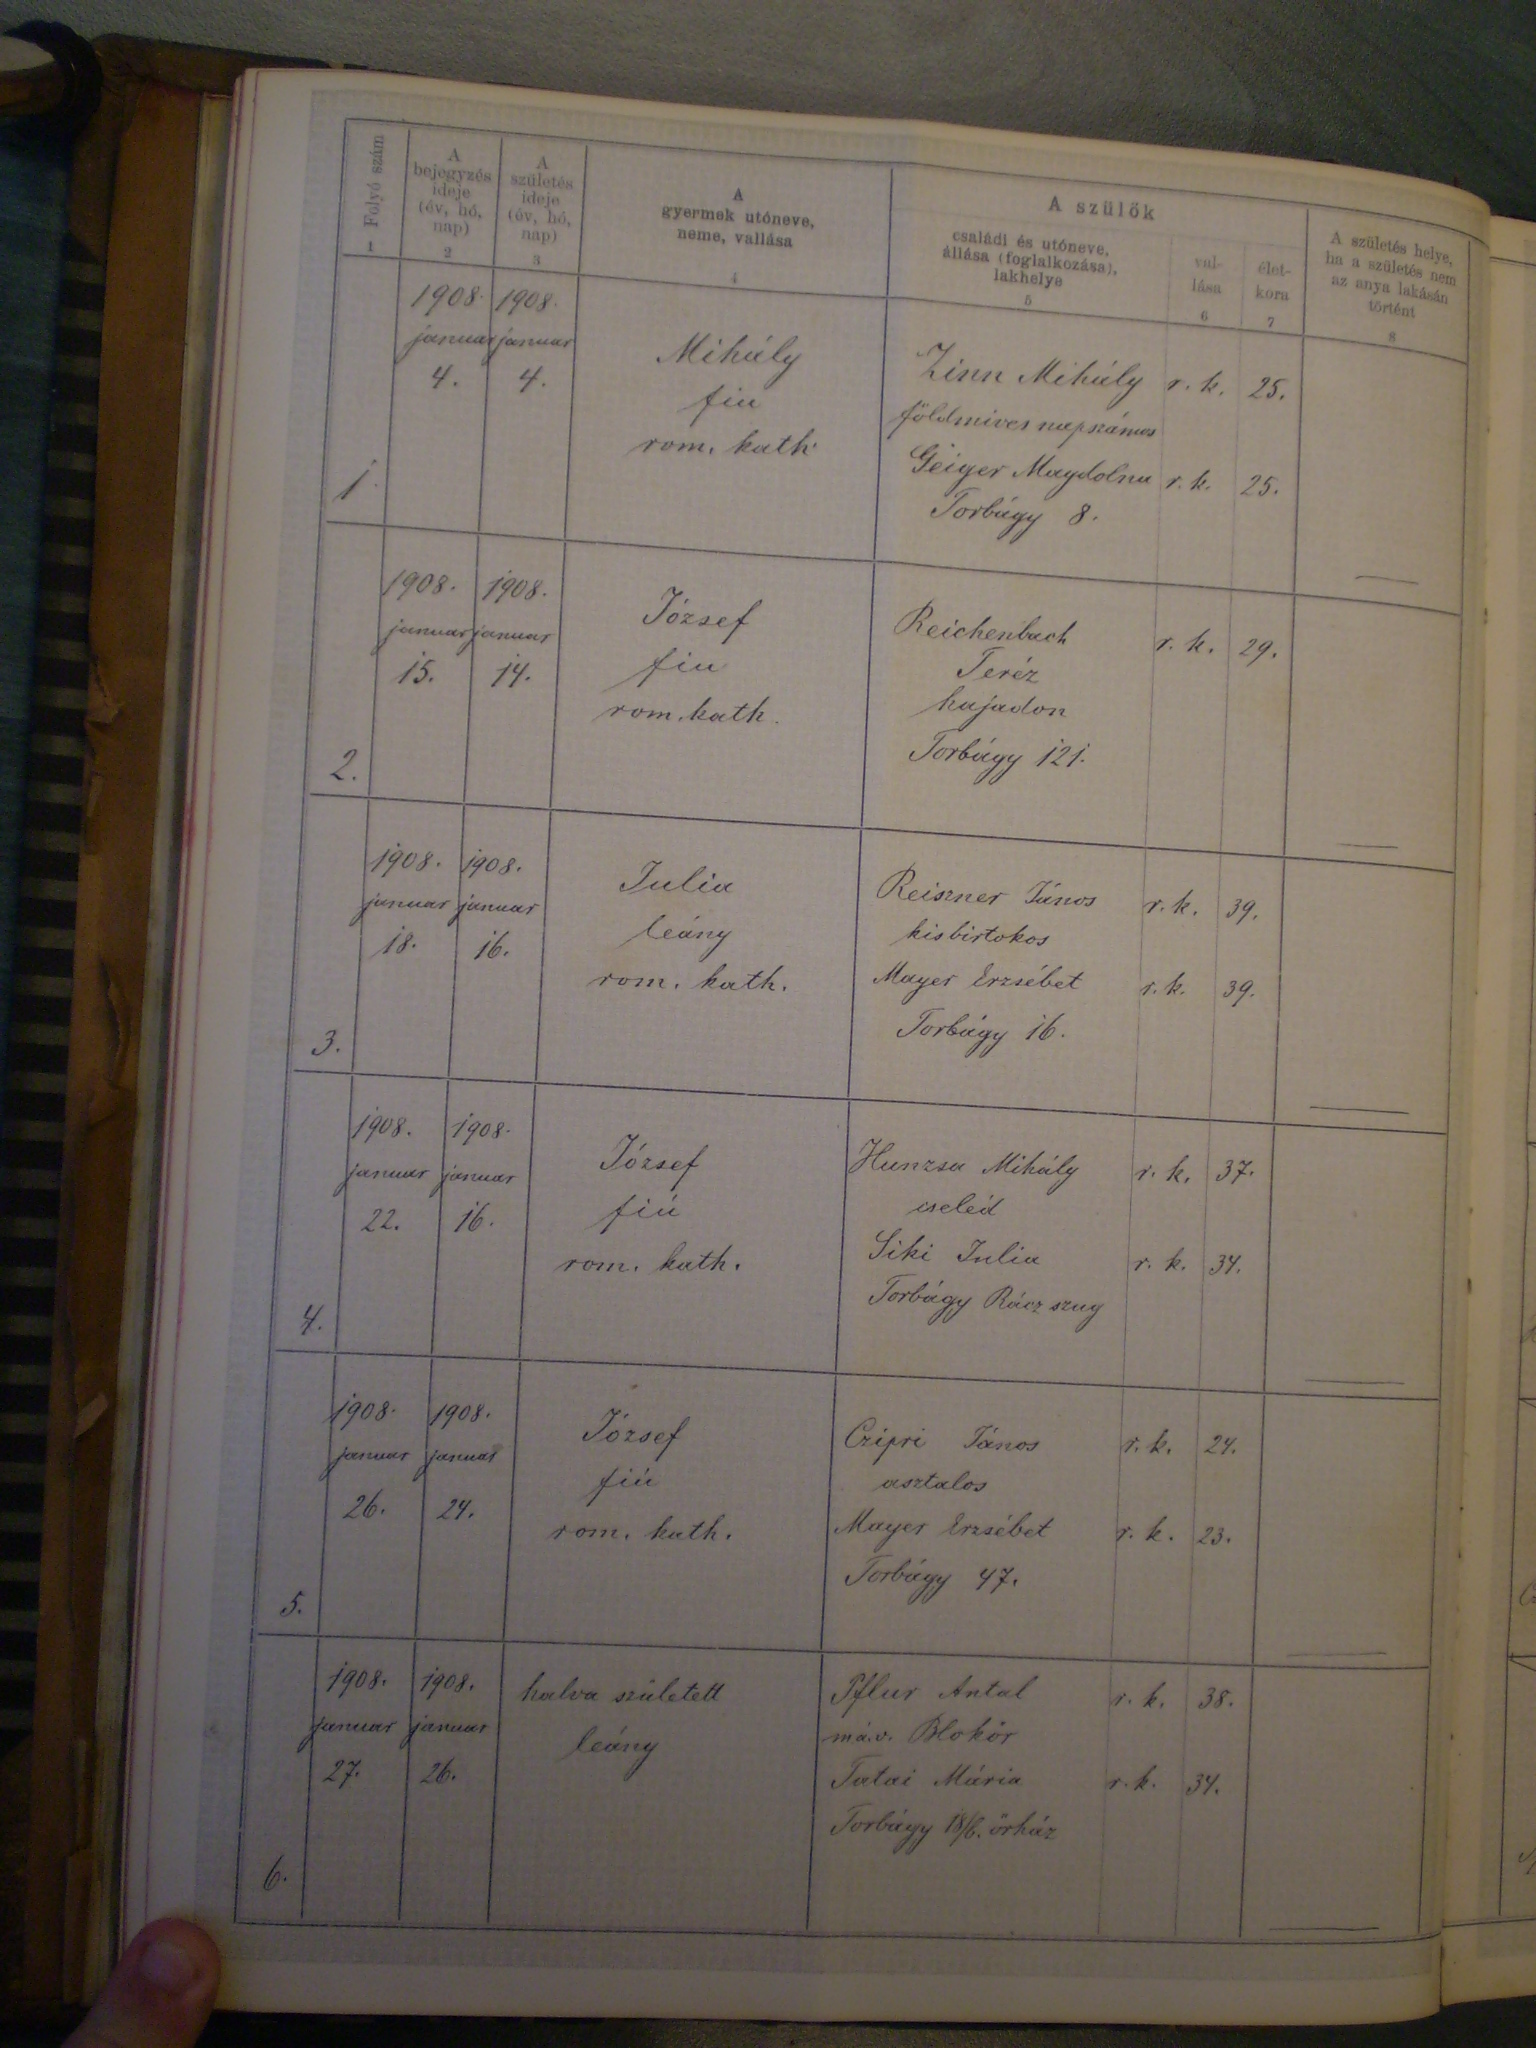 Folyó szám
1
A
bejegyzés
ideje
(év, hó,
nap)
2
A
születés
ideje
(év, hó,
nap)
3
A
gyermek utóneve,
neme, vallása
4
A szülők
családi és utóneve,
állása (foglalkozása),
lakhelye
5
val-
lása
6
élet-
kora
7
A születés helye,
ha a születés nem
az anya lakásán
történt
8
1.
1908.
januar
4.
1908.
januar
4.
Mihály
fiu
rom. kath.
Zinn Mihály r. k. 25.
földmives napszámos
Geiger Magdolna r. k. 25.
Torbágy 8.
2.
1908.
januar
15.
1908.
januar
14.
József
fiu
rom. kath.
Reichenbach r. k. 29.
Teréz
hajadon
Torbágy 121.
3.
1908.
januar
18.
1908.
januar
16.
Julia
leány
rom. kath.
Reiszner János r. k. 39.
kisbirtokos
Mayer Erzsébet r. k. 39.
Torbágy 16.
4.
1908.
januar
22.
1908.
januar
16.
József
fiú
rom. kath.
Hunzsa Mihály r. k. 37.
cseléd
Siki Julia r. k. 34.
Torbágy Rácz szug
5.
1908.
januar
26.
1908.
januar
24.
József
fiú
rom. kath.
Czipri János r. k. 24.
asztalos
Mayer Erzsébet r. k. 23.
Torbágy 47.
6.
1908.
januar
27.
1908.
januar
26.
halva született
leány
Pflur Antal r. k. 38.
má.v. Blokőr
Tatai Mária r. k. 34.
Torbágy 18/b. őrház